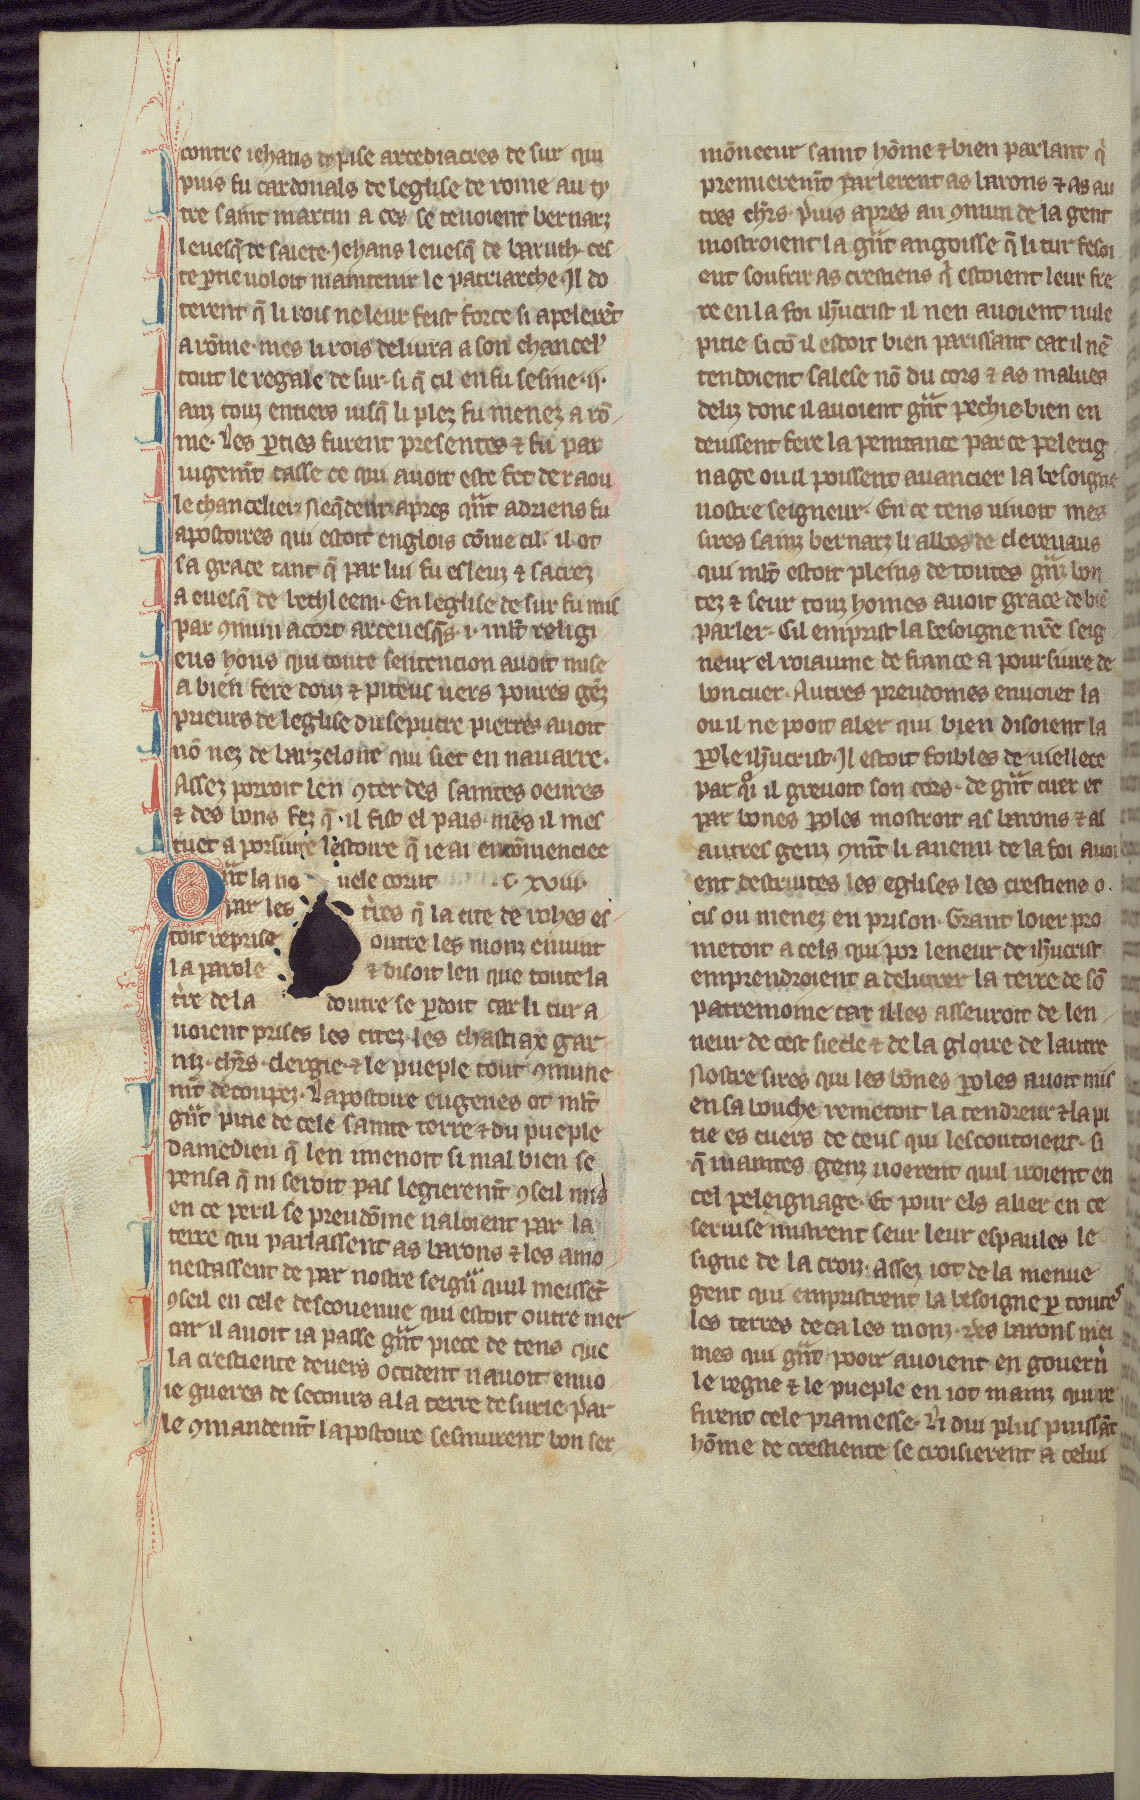 contre iehans de pise arcediacres de sur qui
puis fu cardonals de leglise de rome au ty
tre saint martin a ces se tenoient bernarz
leuesq̃ de saiete. Jehans leuesq̃ de baruth. ces
te ꝑtie uoloit maintenir le patriarche. Jl do
terent q̃ li rois ne leur feist force si apelerẽt
a rõme. mes li rois deliura a son chancelˀ
tout le regale de sur. si q̃ cil en fu sesine .ij.
anz touz entiers iusq̃ li plez fu menez a rõ
me. Les ꝑties furent presentes ⁊ fu par
iugemẽt casse ce qui auoit este fet de raou
le chancelier. Neq̃dent apres qũt adriens fu
apostoires qui estoit englois cõme cil. il ot
sa grace tant q̃ par lui fu esleuz ⁊ sacrez
a euesq̃ de bethleem. En leglise de sur fu mis
par ꝯmun acort arceuesq̃s .i. ml̃t religi
eus hons qui toute sentencion auoit mise
a bien fere douz ⁊ piteus uers poures gẽz
prieurs de leglise du sepucre pierres auoit
nõ nez de barzelone qui siet en nauarre.
Assez porroit len ꝯter des saintes oeures
⁊ des bons fez q̃ il fist el pais. mes il mes
tuet a porsuire lestoire q̃ ie ai encõmenciee
Qũt la no uele corut .C. XVIII.
par les t̃res q̃ la cite de rohes es
toit reprise outre les monz en uint
la parole ⁊ disoit len que toute la
t̃re de la doutre se ꝑdoit car li tur a
uoient prises les citez. les chastiax gar
niz. chr̃s. clergie. ⁊ le pueple tout ꝯmune
mẽt decoupez. Lapostoire eugenes ot ml̃t
gũt pitie de cele sainte terre ⁊ du pueple
damedieu q̃ len i menoit si mal bien se
pensa q̃ ni seroit pas legieremẽt ꝯseil mis
en ce peril se preudõme naloient par la
terre qui parlassent as barons ⁊ les amo
nestassent de par nostre seigñr quil meissẽt
ꝯseil en cele descouenue qui estoit outre mer
car il auoit ia passe gũt piece de tens que
la crestiente deuers occident nauoit enuo
ie gueres de secours a la terre de surie. par
le ꝯmandemẽt lapostoire sesmurent bon ser
mõneeur saint hõme ⁊ bien parlant q̃
premieremẽt parlerent as barons ⁊ as au
tres chr̃s. Puis apres au ꝯmun de la gent
mostroient la gũt angoisse q̃ li tur fesoi
ent soufrir as crestiens q̃ estoient leur fre
re en la foi ihũcrist il nen auoient nule
pitie si cõ il estoit bien parissant car il nẽ
tendoient salese nõ du cors ⁊ as malues
deliz donc il auoient gũt pechie. bien en
deussent fere la penitance par ce pelerig
nage ou il poissent auancier la besoigne
nostre seigneur. En ce tens uiuoit mes
sires sainz bernarz li abbes de clereuaus
qui ml̃t estoit pleins de toutes gũz bon
tez ⁊ seur touz homes auoit grace de biẽ
parler. Cil emprist la besoigne nr̃e seig
neur el roiaume de france a poursuire de
bon cuer. Autres preudomes enuoiet la
ou il ne pooit aler qui bien disoient la
ꝑole ihũcrist. Jl estoit foibles de uiellece
par qͦi il greuoit son cors. de gũt cuer et
par bones ꝑoles mostroit as barons ⁊ as
autres genz ꝯmẽt li anemi de la foi auoi
ent destruites les eglises les crestiens o.
cis ou menez en prison. Grant loier pro
metoit a cels qui por leneur de ihũcrist
emprendroient a deliurer la terre de sõ
patremoine car il les asseuroit de len
neur de cest siecle ⁊ de la gloire de lautre
Nostre sires qui les bõnes ꝑoles auoit mis
en sa bouche remetoit la tendreur ⁊ la pi
tie es cuers de ceus qui lescoutoient. si
q̃ maintes genz uoerent quil iroient en
cel peleignage. Et pour els alier en ce
seruise mistrent seur leur espaules le
signe de la croiz. assez i ot de la menue
gent qui empristrent la besoigne ꝑ toutes
les terres deca les monz. Des barons mei
mes qui gũt pooir auoient en gouern̾
le regne ⁊ le pueple en i ot mainz qui re
firent cele pramesse. Li dui plus puissãt
hõme de crestiente se croisierent a celui